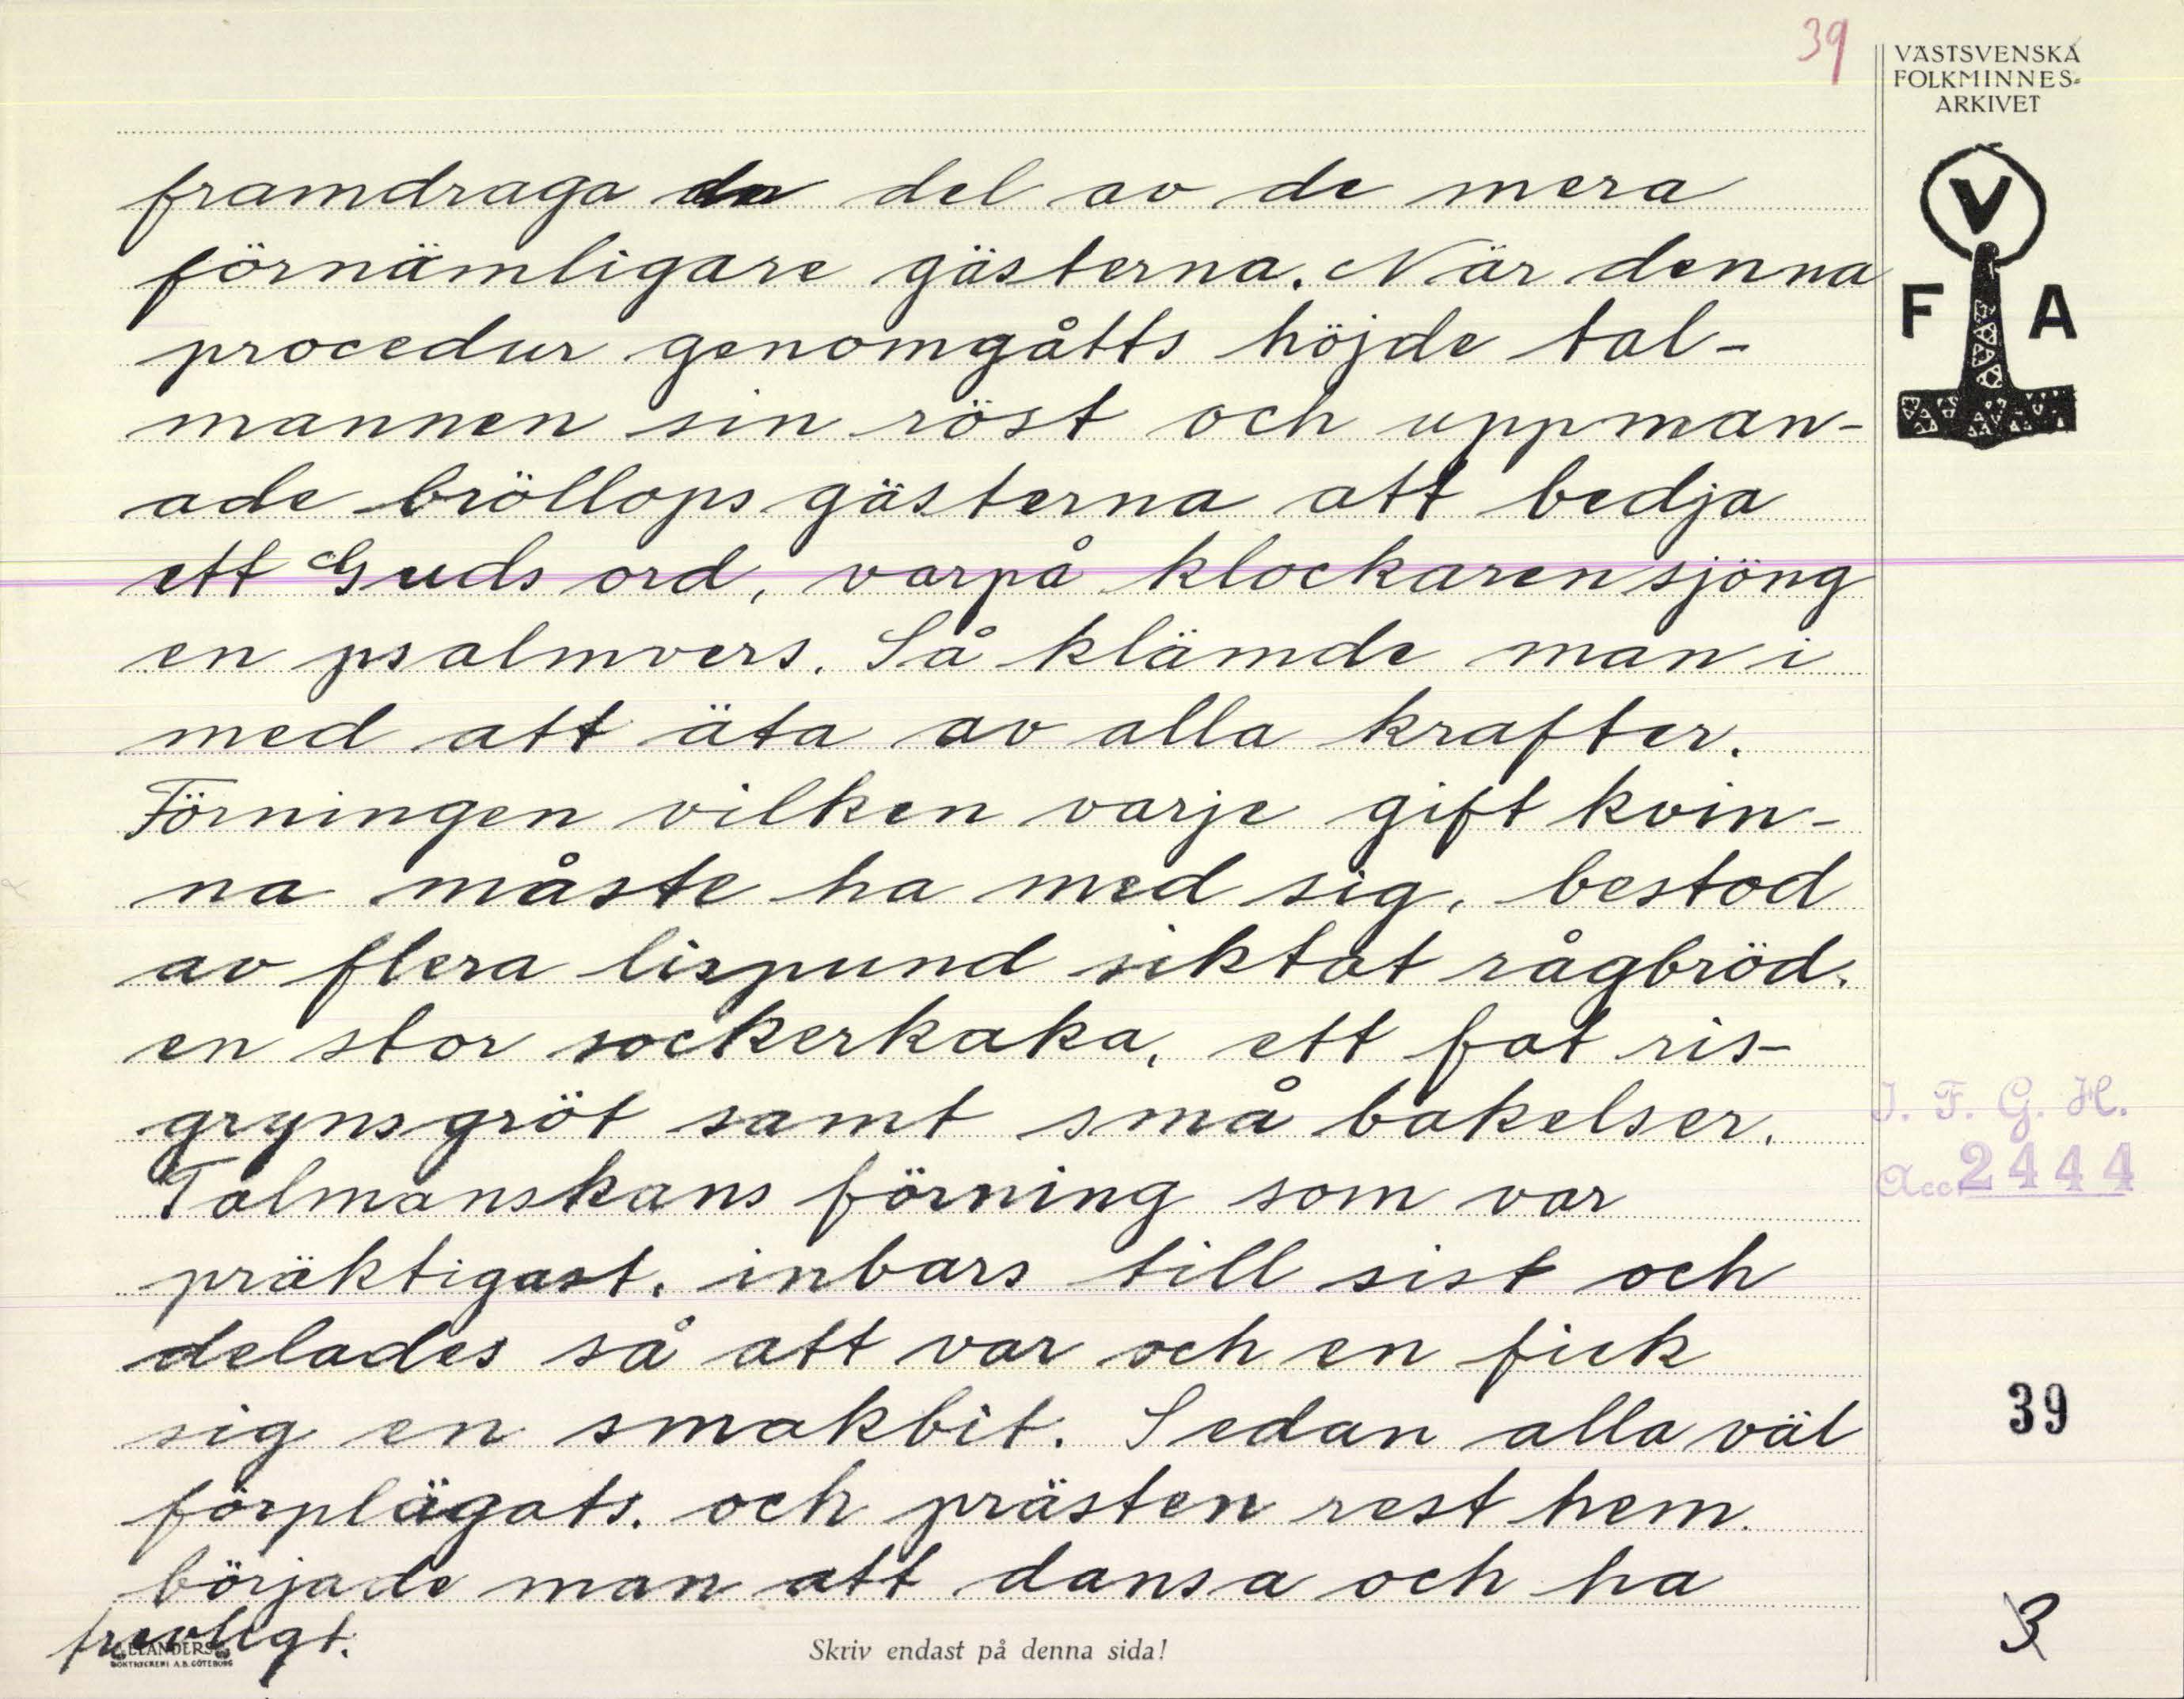 39
VÄSTSVENSKA
FOLKMINNES-
ARKIVET
V
F A
framdraga en del av de mera
förnämligare gästerna. När denna
procedur genomgåtts höjde tal-
mannen sin röst och uppman-
ade bröllopsgästerna att bedja
ett Guds ord, varpå klockaren sjöng
en psalmvers. Så klämde man i
med att äta av alla krafter.
Förningen vilken varje gift kvin-
na måste ha med sig, bestod
av flera lispund siktat rågbröd,
en stor sockerkaka, ett fat ris-
grynsgröt samt små bakelser.
Talmanskans förning som var
präktigast, inbars till sist och
delades så att var och en fick
sig en smakbit. Sedan alla väl
förplägats, och prästen rest hem
började man att dansa och ha
trevligt.
I. F. G. H.
Acc. 2444
39
3
ELANDERS
BOKTRYCKERI A.B. GÖTEBORG
Skriv endast på denna sida!